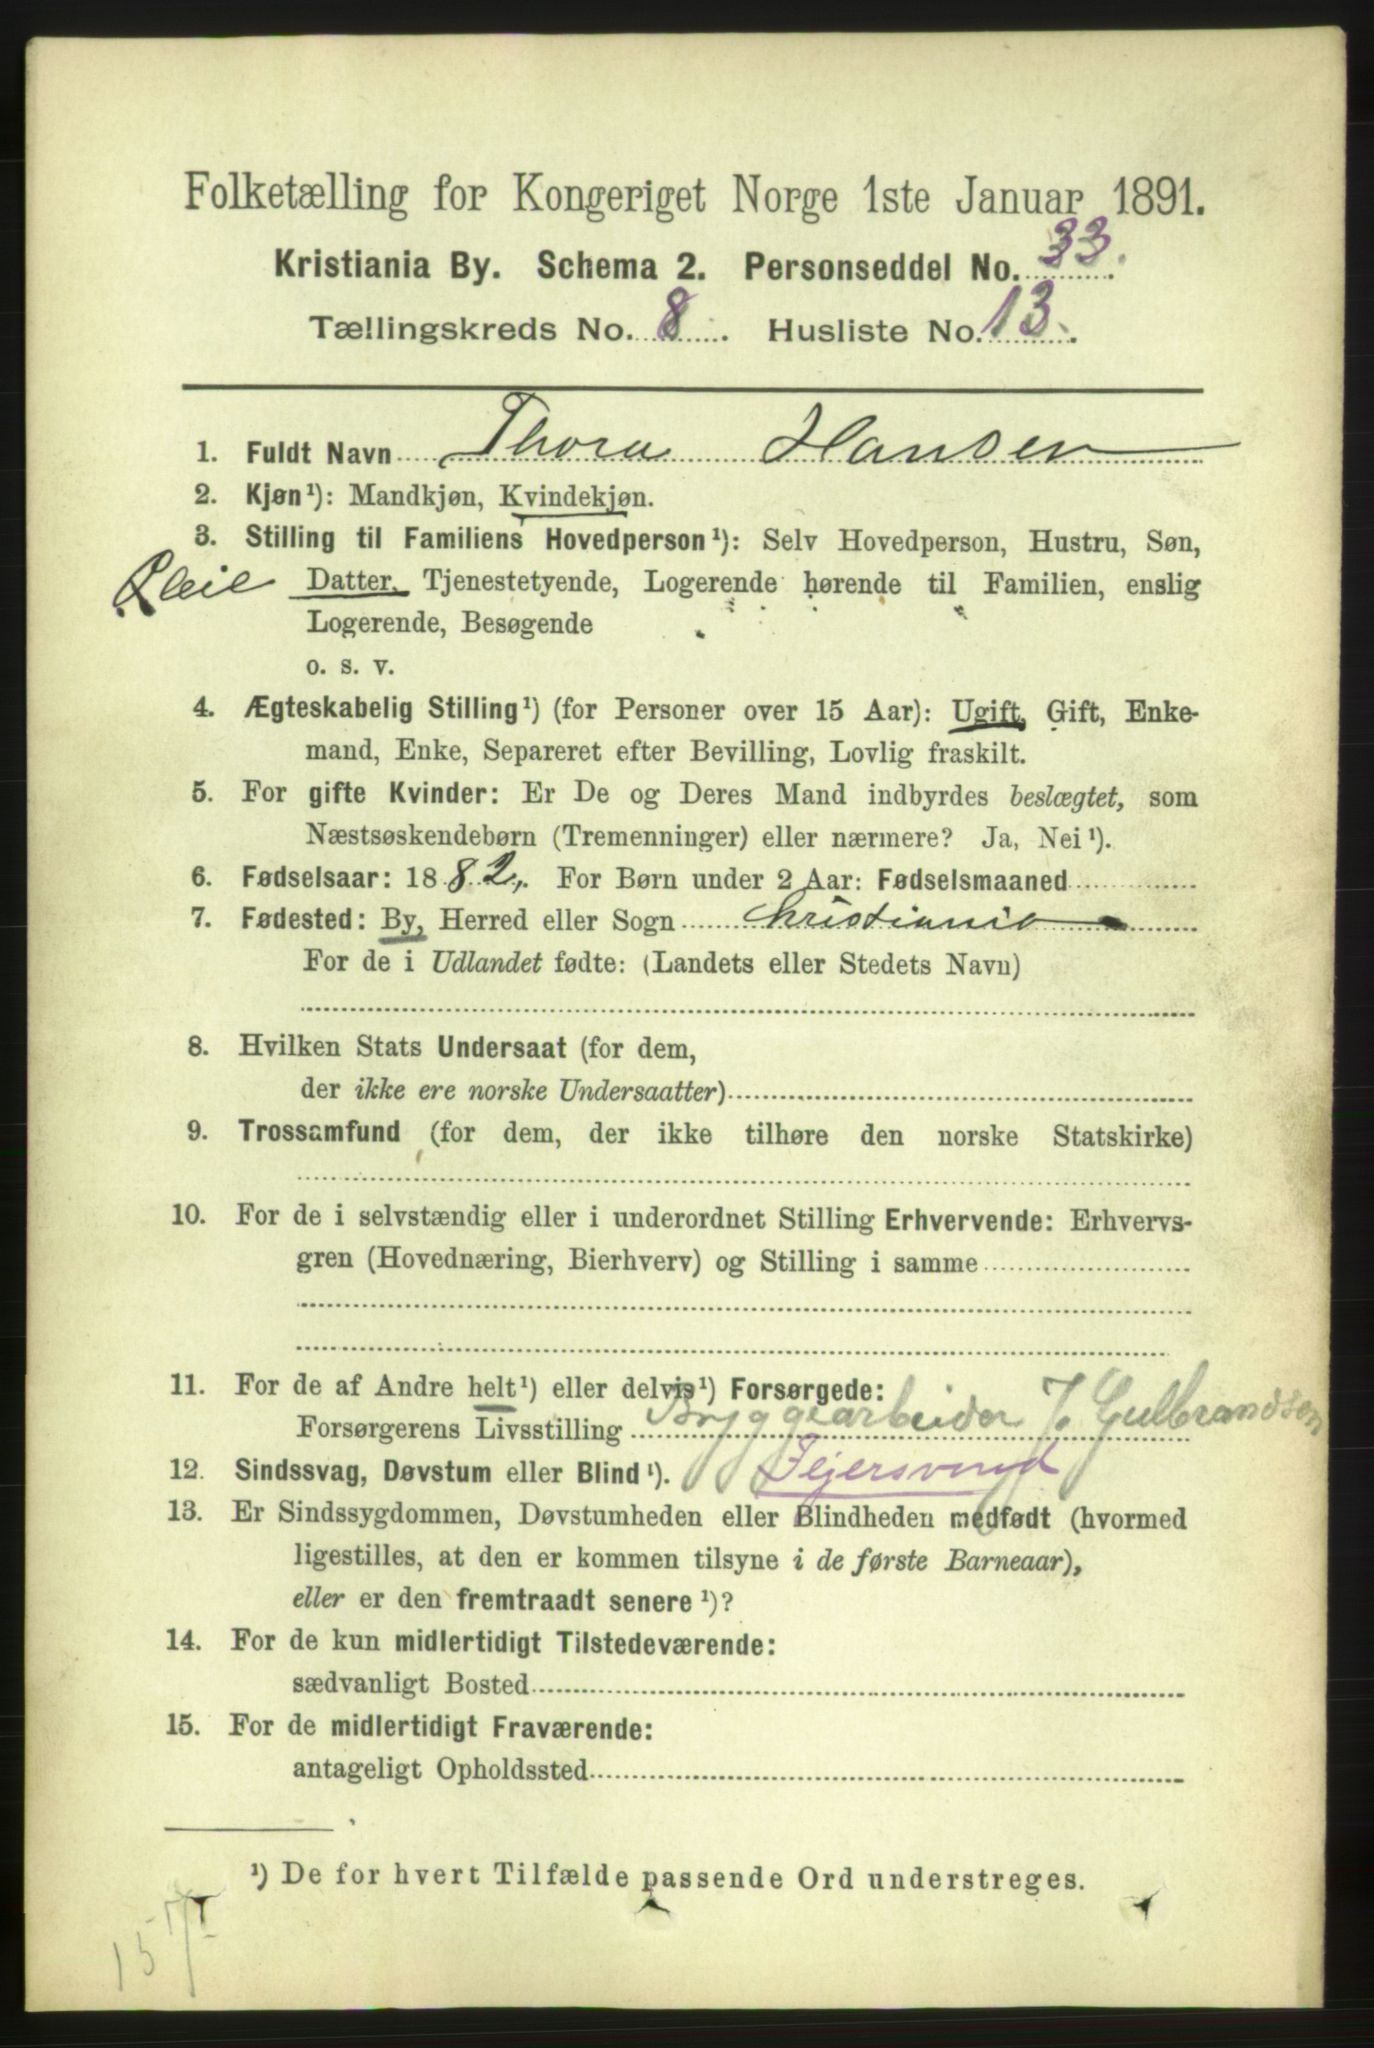 Folketælling for Kongeriget Norge 1ste Januar 1891.
Kristiania By. Schema 2. Personseddel No. 33.
Tællingskreds No. 8. Husliste No. 13.
1. Fuldt Navn Thora Hansen
2. Kjøn¹): Mandkjøn, Kvindekjøn.
3. Stilling til Familiens Hovedperson¹): Selv Hovedperson, Hustru, Søn,
Pleie Datter, Tjenestetyende, Logerende hørende til Familien, enslig
Logerende, Besøgende
o. s. v.
4. Ægteskabelig Stilling¹) (for Personer over 15 Aar): Ugift, Gift, Enke-
mand, Enke, Separeret efter Bevilling, Lovlig fraskilt.
5. For gifte Kvinder: Er De og Deres Mand indbyrdes beslægtet, som
Næstsøskendebørn (Tremenninger) eller nærmere? Ja, Nei¹).
6. Fødselsaar: 1882,. For Børn under 2 Aar: Fødselsmaaned
7. Fødested: By, Herred eller Sogn Christiania
For de i Udlandet fødte: (Landets eller Stedets Navn)
8. Hvilken Stats Undersaat (for dem,
der ikke ere norske Undersaatter)
9. Trossamfund (for dem, der ikke tilhøre den norske Statskirke)
10. For de i selvstændig eller i underordnet Stilling Erhvervende: Erhvervs-
gren (Hovednæring, Bierhverv) og Stilling i samme
11. For de af Andre helt¹) eller delvis¹) Forsørgede:
Forsørgerens Livsstilling Bryggearbeider J. Gulbrandsen
12. Sindssvag, Døvstum eller Blind¹). Fejersvend
13. Er Sindssygdommen, Døvstumheden eller Blindheden medfødt (hvormed
ligestilles, at den er kommen tilsyne i de første Barneaar),
eller er den fremtraadt senere¹)?
14. For de kun midlertidigt Tilstedeværende:
sædvanligt Bosted
15. For de midlertidigt Fraværende:
antageligt Opholdssted
¹) De for hvert Tilfælde passende Ord understreges.